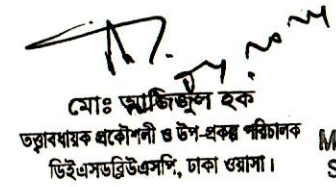 মোঃ আজিজুল হক
তত্ত্বাবধায়ক প্রকৌশলী ও উপ-প্রকল্প পরিচালক
ডিইএসডব্লিউএসপি, ঢাকা ওয়াসা।
M
S